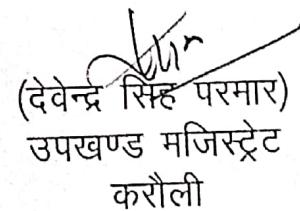 (देवेन्द्र सिंह परमार)
उपखण्ड मजिस्ट्रेट
करौली